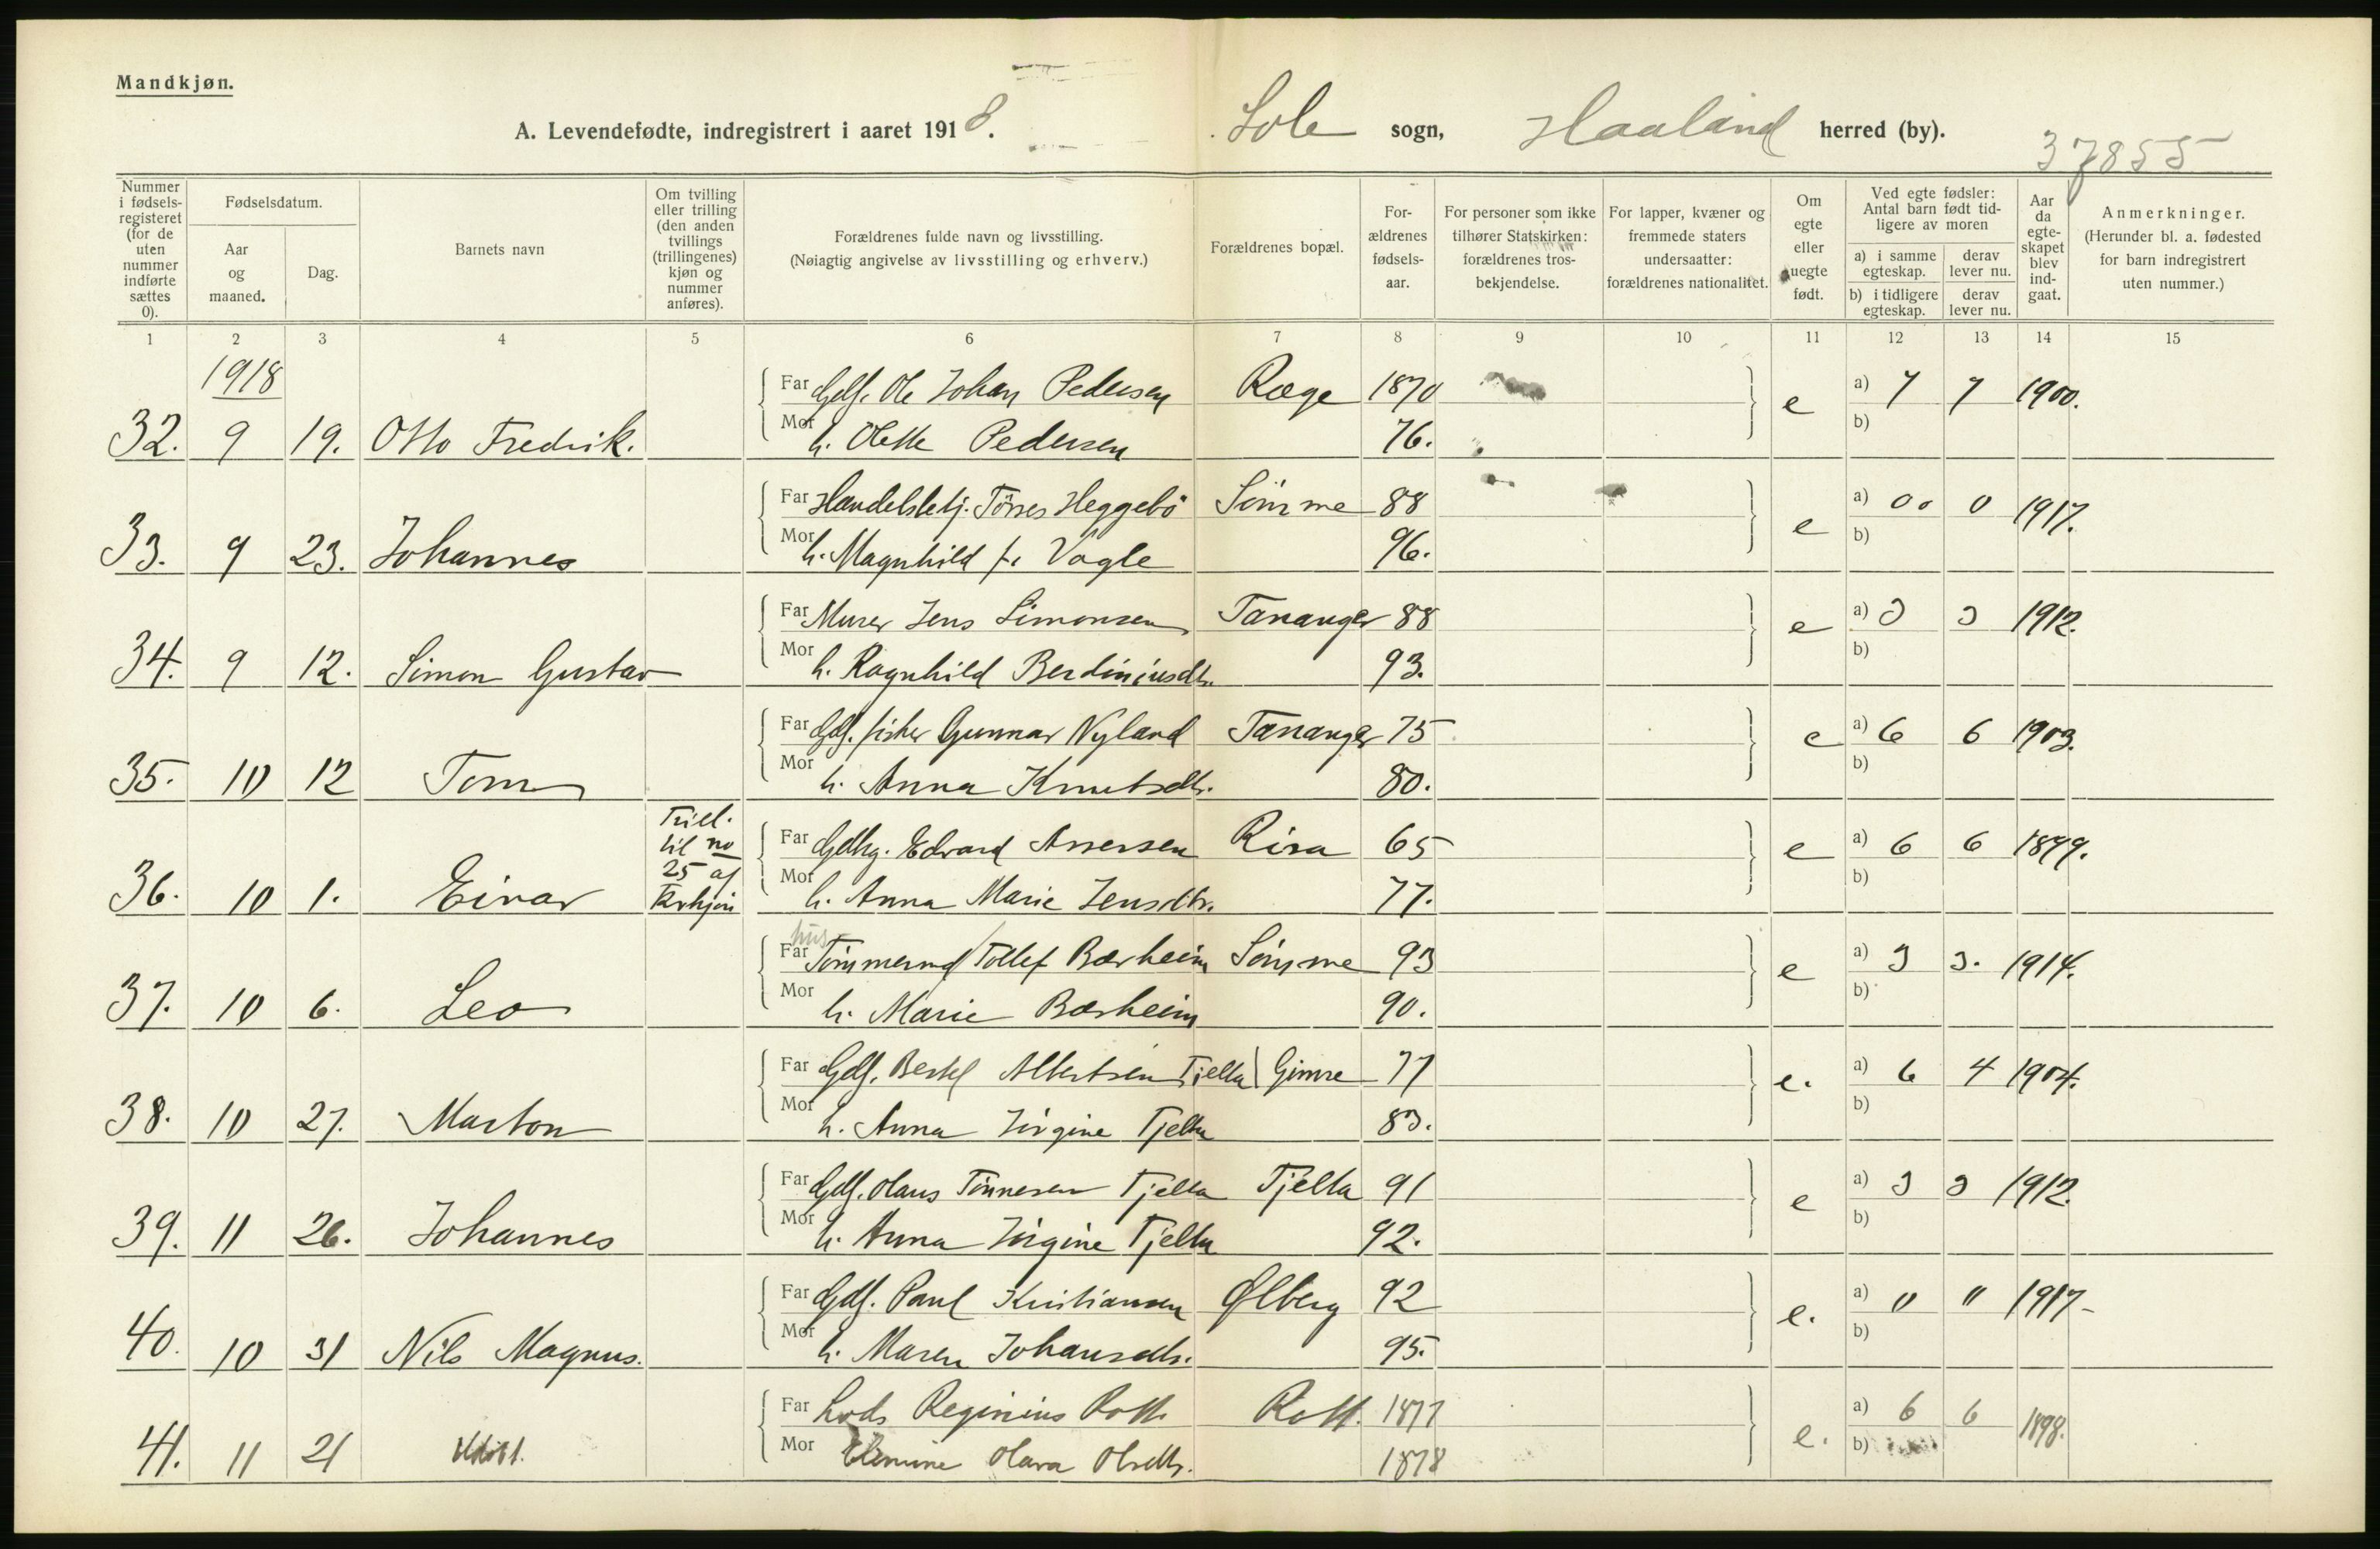 Mandkjøn.
A. Levendefødte, indregistrert i aaret 1918. Sole sogn, Haaland herred (by).
37855
Nummer i fødselsregisteret (for de uten nummer indførte sættes 0).
Fødselsdatum.
Aar og maaned.
Dag.
Barnets navn
Om tvilling eller trilling (den anden tvillings (trillingenes) kjøn og nummer anføres).
Forældrenes fulde navn og livsstilling.
(Nøiagtig angivelse av livsstilling og erhverv.)
Forældrenes bopæl.
Forældrenes fødselsaar.
For personer som ikke tilhører Statskirken: forældrenes trosbekjendelse.
For lapper, kvæner og fremmede staters undersaatter: forældrenes nationalitet.
Om egte eller uegte født.
Ved egte fødsler: Antal barn født tidligere av moren
a) i samme egteskap. derav lever nu.
b) i tidligere egteskap. derav lever nu.
Aar da egteskapet blev indgaat.
Anmerkninger.
(Herunder bl. a. fødested for barn indregistrert uten nummer.)
1 2 3 4 5 6 7 8 9 10 11 12 13 14 15
1918
Far Gdf. Ole Johan Pedersen Ræge 1870 e a) 7 7 1900.
32. 9 19. Otto Fredrik. Mor h. Olette Pedersen 76. b)
Far Handelsbetj. Törres Heggebö Sömme 88 e a) 0. 0 1917.
33. 9 23. Johannes Mor h. Magnhild f. Vagle 96. b)
Far Murer Jens Simonsen Tananger 88 e a) 3 3 1912.
34. 9 12. Simon Gustav Mor h. Ragnhild Berdiniusdtr. 93. b)
Far Gdf. fisker Gunnar Nyland Tananger 75 e a) 6 6 1903.
35. 10 12 Tom Mor h. Anna Knutsdtr. 80. b)
Trill. til no 25 af Kvkjön
Far Gdbr. Edvard Assersen Risa 65 e a) 6 6 1899.
36. 10 1. Einar Mor h. Anna Marie Jensdtr. 77. b)
hus
Far Tömmermd Tollef Bærheim Sömme 93 e a) 3 3. 1914.
37. 10 6. Leo Mor h. Marie Bærheim 90. b)
Far Gdf. Bertel Albertsen Tjelta Gimre 77 e. a) 6 4 1904.
38. 10 27. Marton Mor h. Anna Jörgine Tjelta 83. b)
Far Gdf. Olaus Tönnesen Tjelta Tjelta 91 e a) 3 3 1912.
39. 11 26. Johannes Mor h. Anna Jörgine Tjelta 92. b)
Far Gdf. Paul Kristiansen Ølberg 92 e. a) 0 0 1917
40. 10 31 Nils Magnus. Mor h. Maren Johansdtr. 95. b)
Far Lods Reginius Rott Rott. 1877 e. a) 6 6 1898.
41. 11 21 Udöbt. Mor Elenine Olava Olsdtr. 1878 b)